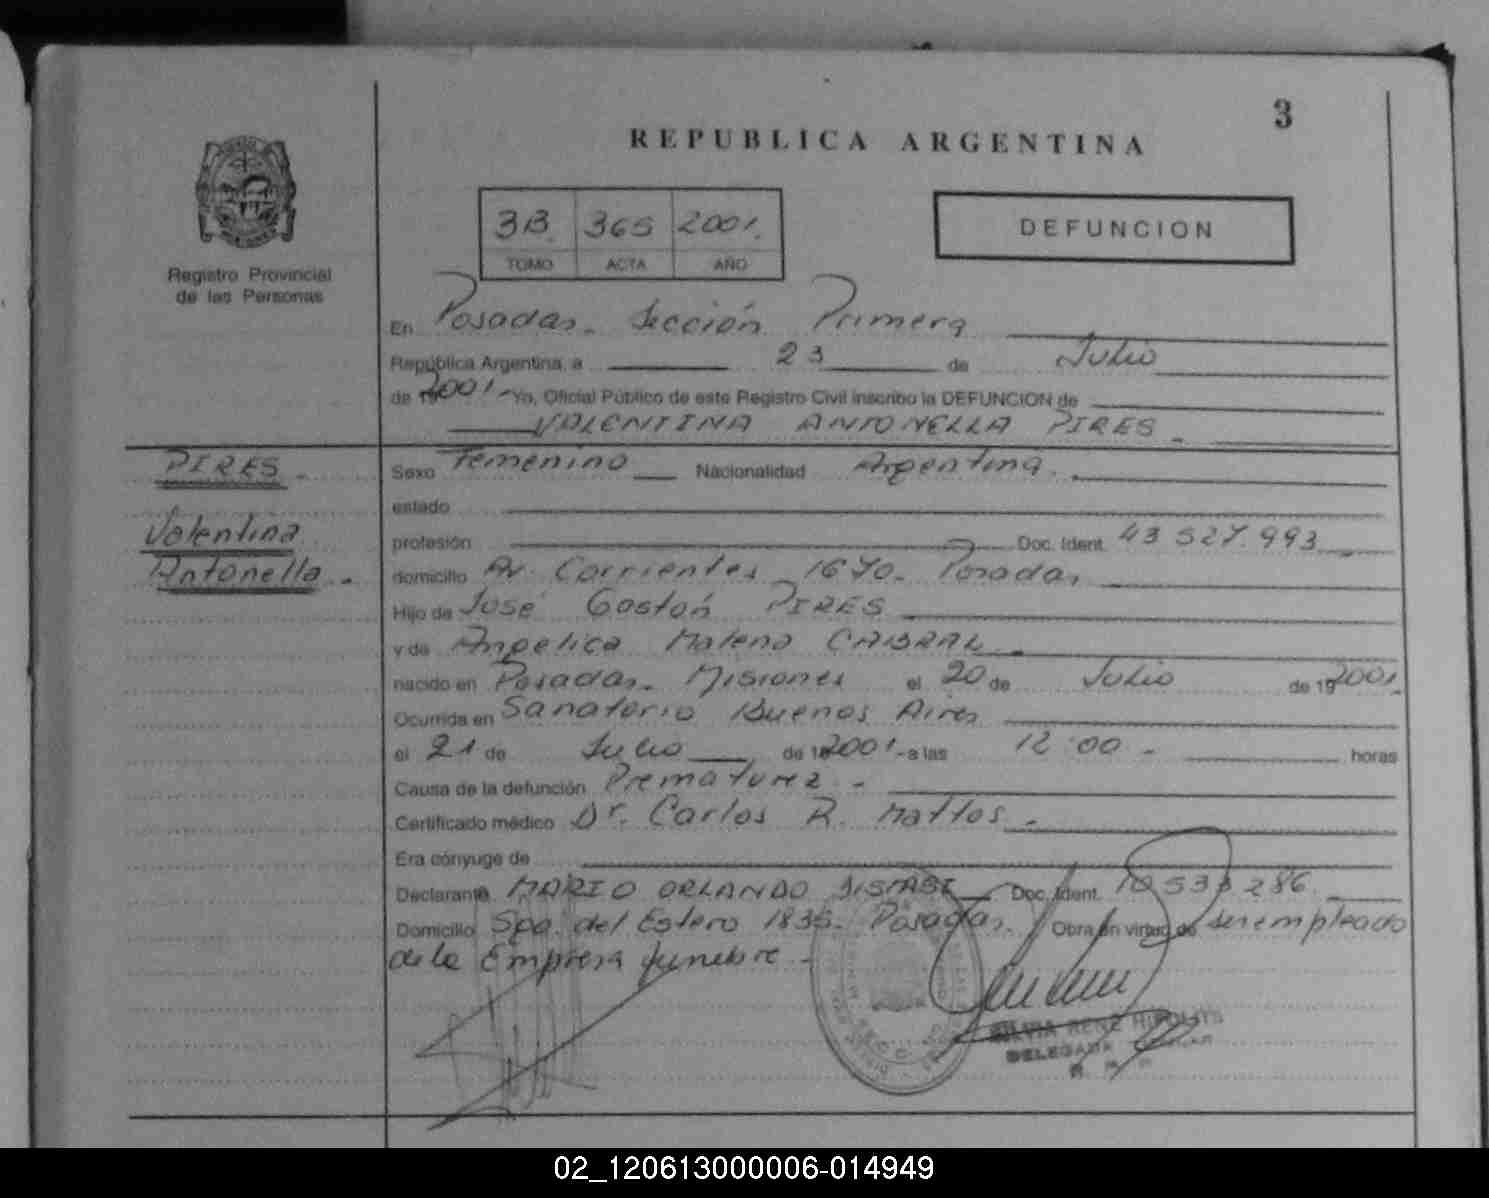 3
REPUBLICA ARGENTINA
3B. 365 2001.
TOMO ACTA AÑO
DEFUNCION
Registro Provincial
de las Personas
En Posadas. Sección Primera
República Argentina, a 23 de Julio
de 2001 - Yo, Oficial Público de este Registro Civil inscribo la DEFUNCION de
VALENTINA ANTONELLA PIRES.
PIRES.
Valentina
Antonella.
Sexo Femenino Nacionalidad Argentina.
estado
profesión Doc. Ident. 43 527.993
domicilio Av. Corrientes 1670. Posadas
Hijo de José Gastón PIRES
y de Angelica Malena CABRAL.
nacido en Posadas. Misiones el 20 de Julio de 19 2001.
Ocurrida en Sanatorio Buenos Aires
el 21 de Julio de 2001 - a las 12:00 - horas
Causa de la defunción Prematurez.
Certificado médico Dr. Carlos R. Mattos.
Era cónyuge de
Declarante MARIO ORLANDO Doc. Ident. 10.533.286.
Domicilio Sgo. del Estero 1835. Posadas. Obra en virtud de ser empleado
de la Empresa funebre.
SILVIA RENE HIPOLITO
DELEGADA
02_120613000006-014949